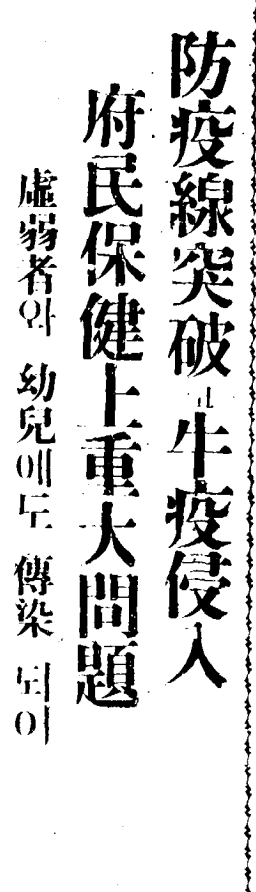 防疫線突破고 牛疫侵入
府民保健上重大問題
虛弱者와 幼兒에도 傳染되어